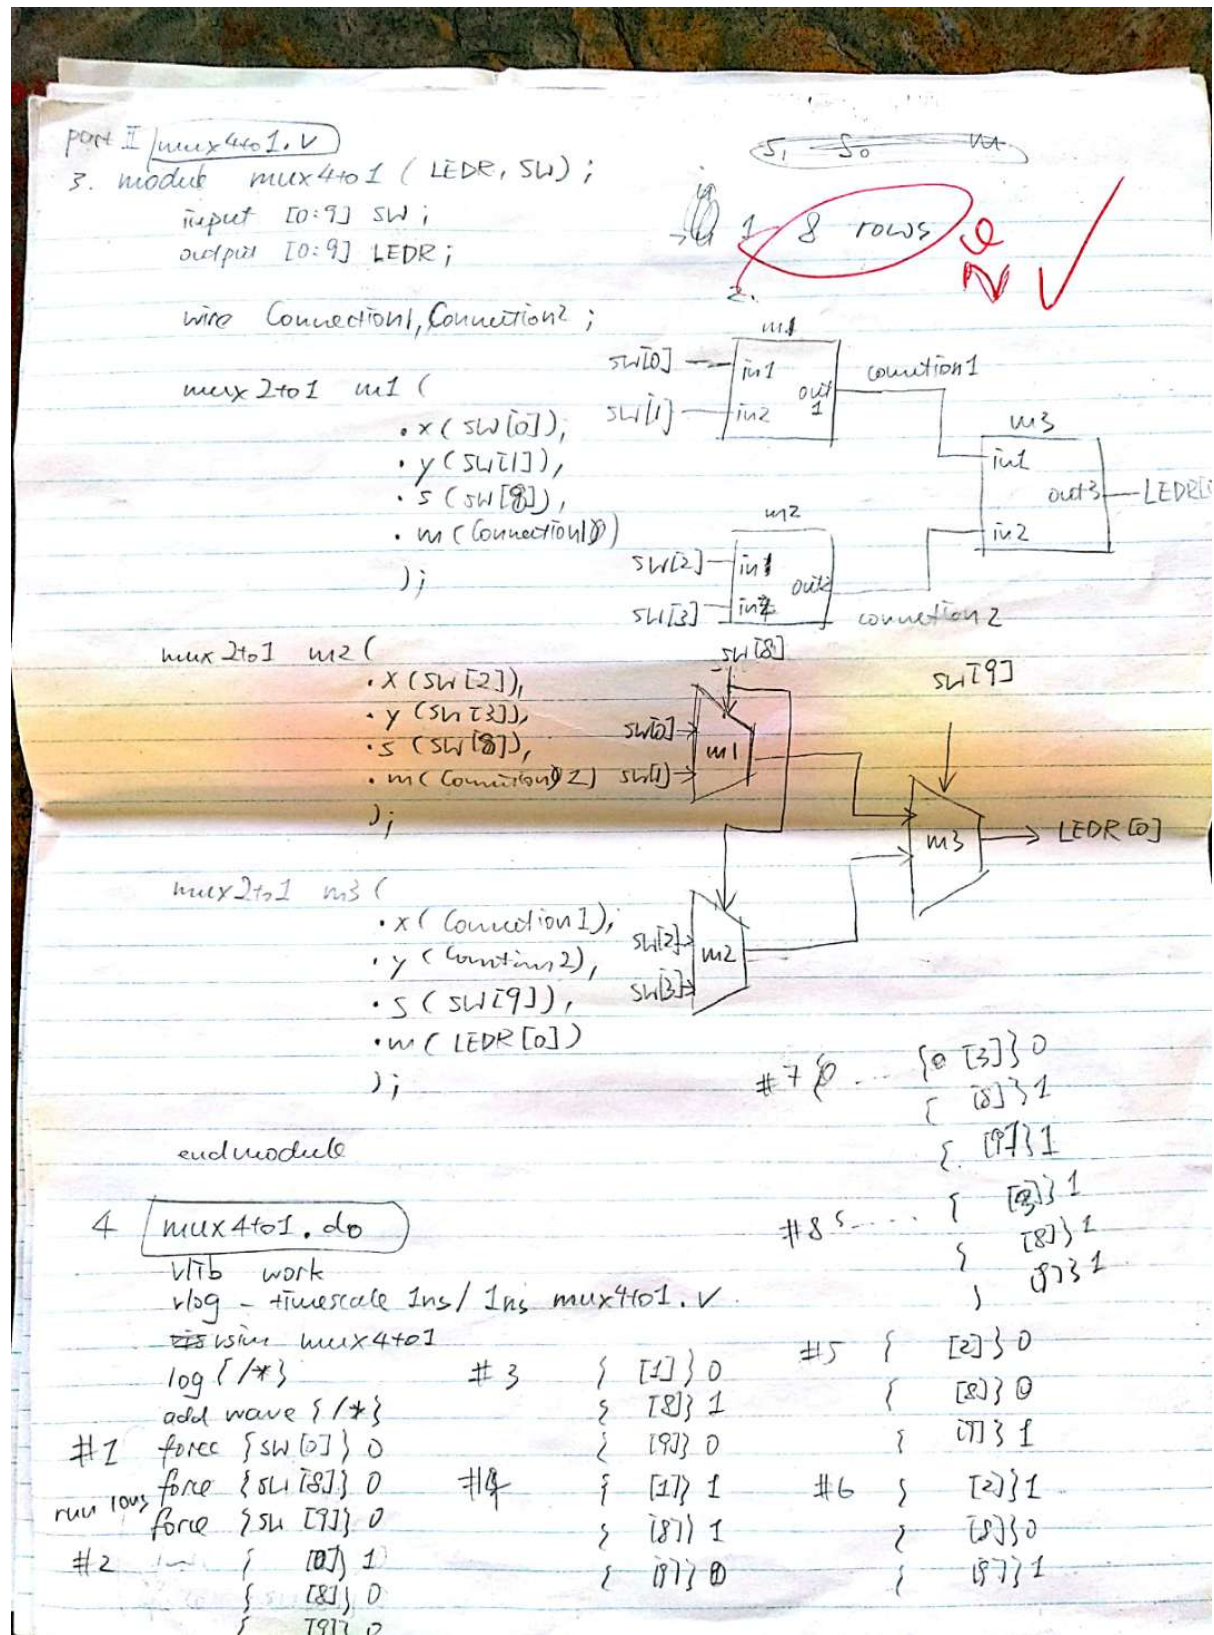 part II mux4to1.v
3. module mux4to1 ( LEDR, SW) ;
input [0:9] SW ;
output [0:9] LEDR ;
wire Connection1, Connection2 ;
mux 2to1 m1 (
. x ( SW [0]),
. y ( SW[1]),
. s ( SW[8]),
. m ( Connection1)
) ;
mux 2to1 m2 (
. x (SW [2]),
. y (SW [3]),
. s ( SW [8]),
. m ( Connection 2)
) ;
mux2to1 m3 (
. x ( Connection 1),
. y ( Connection 2),
. s ( SW[9]),
. m ( LEDR [0])
) ;
endmodule
S1 S0 m
1 8 rows
2.
m1
SW[0]
in1
connection1
SW[1]
in2
out
1
m3
in1
out3
in2
m2
SW[2]
SW[3]
connection 2
SW[8]
SW[9]
SW[0]
m1
SW[1]
m3
LEDR [0]
SW[2]
m2
SW[3]
4 mux4to1. do
vlib work
vlog - timescale 1ns / 1ns mux4to1. v
vsim mux4to1
log { /* }
add wave { /* }
#1 force { SW [0] } 0
force { SW [8]} 0
run 10ns
force { SW [9]} 0
#2 { [0]} 1
{ [8]} 0
{ [9]} 0
#3 { [1] } 0
{ [8]} 1
{ [9]} 0
#4 { [1]} 1
{ [8]} 1
{ [9]} 0
#5 { [2] } 0
{ [8] } 0
{ [9] } 1
#6 { [2]} 1
{ [8]} 0
{ [9]} 1
#7 .... { [3]} 0
{ [8]} 1
{ [9]} 1
#8 .... { [3]} 1
{ [8]} 1
[9]} 1